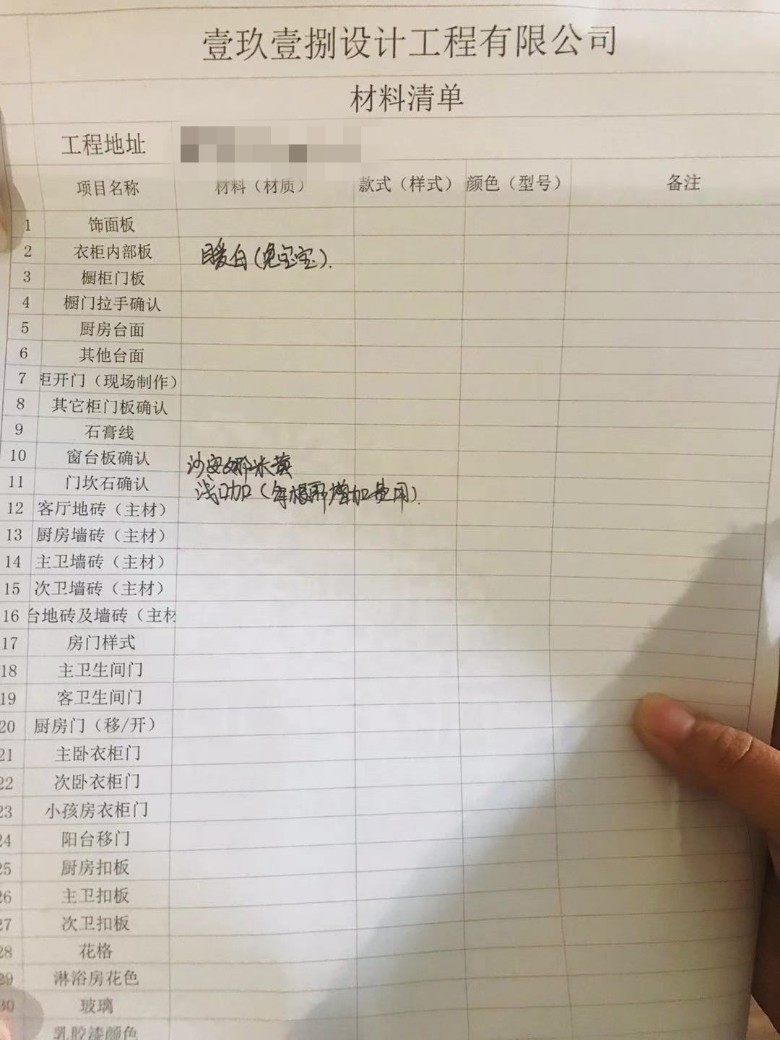 壹玖壹捌设计工程有限公司
材料清单
工程地址
项目名称 材料（材质） 款式（样式） 颜色（型号） 备注
1 饰面板
2 衣柜内部板 暖白(兔宝宝).
3 橱柜门板
4 橱门拉手确认
5 厨房台面
6 其他台面
7 柜开门（现场制作）
8 其它柜门板确认
9 石膏线
10 窗台板确认 沙安娜米黄
11 门坎石确认 浅啡(
增加费用).
12 客厅地砖（主材）
13 厨房墙砖（主材）
14 主卫墙砖（主材）
15 次卫墙砖（主材）
16 台地砖及墙砖（主材
17 房门样式
18 主卫生间门
19 客卫生间门
20 厨房门（移/开）
21 主卧衣柜门
22 次卧衣柜门
23 小孩房衣柜门
24 阳台移门
25 厨房扣板
26 主卫扣板
27 次卫扣板
28 花格
29 淋浴房花色
30 玻璃
乳胶漆颜色